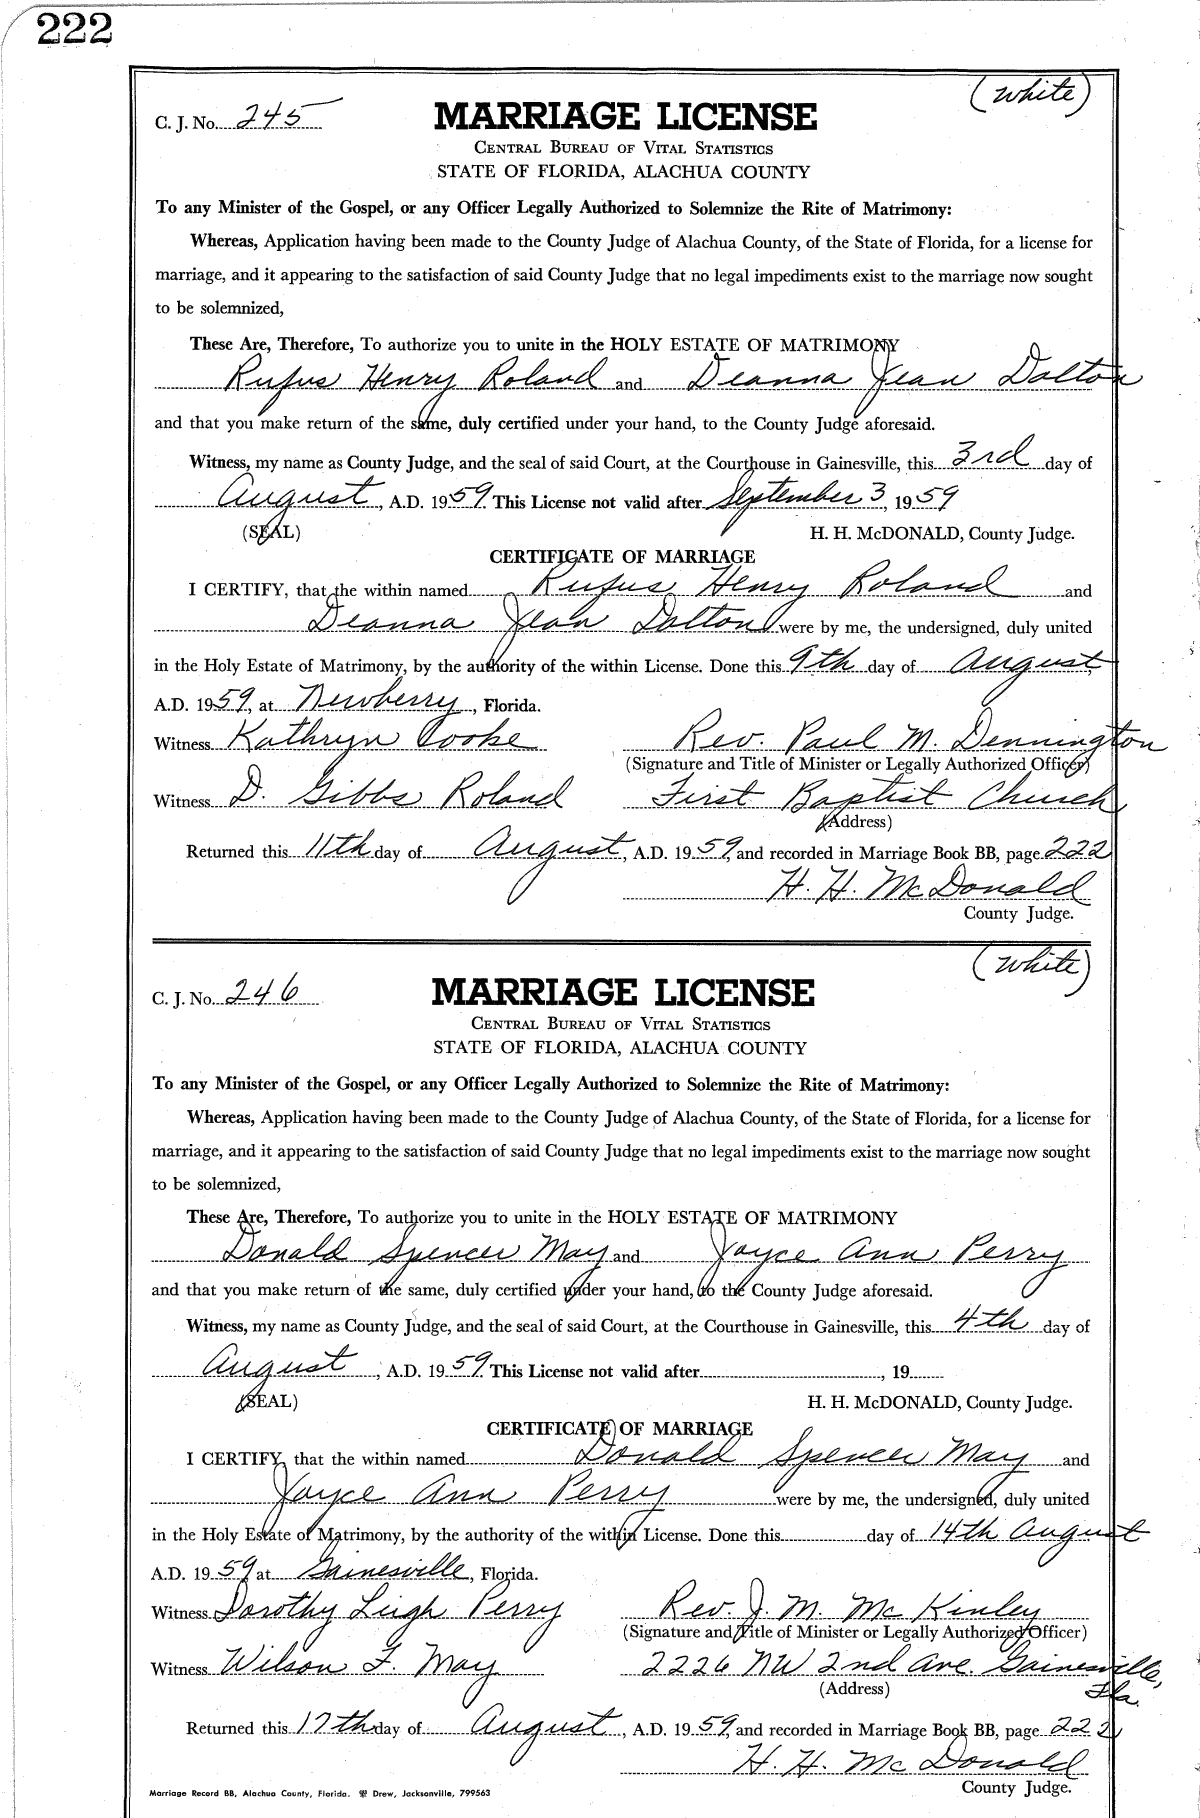 222
(White)
C. J. No. 245
MARRIAGE LICENSE
CENTRAL BUREAU OF VITAL STATISTICS
STATE OF FLORIDA, ALACHUA COUNTY
To any Minister of the Gospel, or any Officer Legally Authorized to Solemnize the Rite of Matrimony:
Whereas, Application having been made to the County Judge of Alachua County, of the State of Florida, for a license for
marriage, and it appearing to the satisfaction of said County Judge that no legal impediments exist to the marriage now sought
to be solemnized,
These Are, Therefore, To authorize you to unite in the HOLY ESTATE OF MATRIMONY
Rufus Henry Roland and Deanna Jean Dalton
and that you make return of the same, duly certified under your hand, to the County Judge aforesaid.
Witness, my name as County Judge, and the seal of said Court, at the Courthouse in Gainesville, this 3rd day of
August, A.D. 1959. This License not valid after September 3, 1959
(SEAL) H. H. McDONALD, County Judge.
CERTIFICATE OF MARRIAGE
I CERTIFY, that the within named Rufus Henry Roland and
Deanna Jean Dalton were by me, the undersigned, duly united
in the Holy Estate of Matrimony, by the authority of the within License. Done this 9th day of August,
A.D. 1959, at Newberry, Florida.
Witness Kathryn Cooke Rev. Paul M. Dennington
(Signature and Title of Minister or Legally Authorized Officer)
Witness D. Gibbs Roland First Baptist Church
(Address)
Returned this 11th day of August, A.D. 1959, and recorded in Marriage Book BB, page 222
H. H. McDonald
County Judge.
(White)
C. J. No. 246
MARRIAGE LICENSE
CENTRAL BUREAU OF VITAL STATISTICS
STATE OF FLORIDA, ALACHUA COUNTY
To any Minister of the Gospel, or any Officer Legally Authorized to Solemnize the Rite of Matrimony:
Whereas, Application having been made to the County Judge of Alachua County, of the State of Florida, for a license for
marriage, and it appearing to the satisfaction of said County Judge that no legal impediments exist to the marriage now sought
to be solemnized,
These Are, Therefore, To authorize you to unite in the HOLY ESTATE OF MATRIMONY
Donald Spencer May and Joyce Ann Perry
and that you make return of the same, duly certified under your hand, to the County Judge aforesaid.
Witness, my name as County Judge, and the seal of said Court, at the Courthouse in Gainesville, this 4th day of
August, A.D. 1959. This License not valid after , 19
(SEAL) H. H. McDONALD, County Judge.
CERTIFICATE OF MARRIAGE
I CERTIFY, that the within named Donald Spencer May and
Joyce Ann Perry were by me, the undersigned, duly united
in the Holy Estate of Matrimony, by the authority of the within License. Done this day of 14th August
A.D. 1959, at Gainesville, Florida.
Witness Dorothy Leigh Perry Rev. J. M. McKinley
(Signature and Title of Minister or Legally Authorized Officer)
Witness Wilson F. May 2226 NW 2nd Ave. Gainesville,
Fla.
(Address)
Returned this 17th day of August, A.D. 1959, and recorded in Marriage Book BB, page 222
H. H. McDonald
County Judge.
Marriage Record BB, Alachua County, Florida. Drew, Jacksonville, 799563